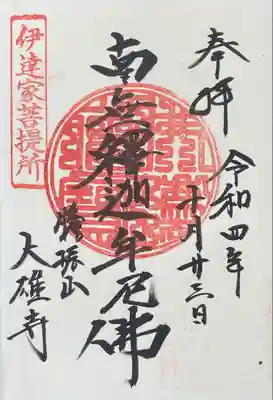 奉拝
令和四年
十月廿三日
南無釋迦牟尼佛
伊達家菩提所
大雄寺